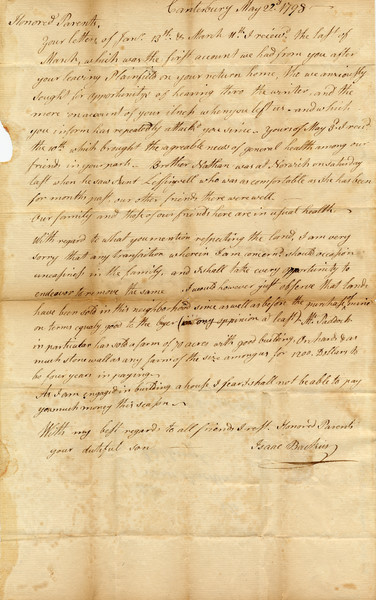 Canterbury May 22d 1798
Honored Parents,
Your letters of Janr. 13th & March 11th I receivd. the last of
March, which was the first account we had from you after
your leaving Plainfield on your return home, Tho we anxiously
sought for opportunitys of hearing thro the winter, and the
more on account of your ilness when you left us - and which
you inform has repeatedly attackd you since. Yours of May 2nd recd
the 10th which brought the agreable news of general health among our
friends in your parts. Brother Nathan was at Norwich on saturday
last when he saw Aunt Leffingwell who was as comfortable as she has been
for months past, our other friends there were well.
Our family and those of our friends here are in usual health.
With regard to what you mention respecting the land, I am very
sorry that any transaction wherein I am concernd should occasion
uneasiness in the family, and shall take every opportunity to
endeavor to remove the same I would however just observe that lands
have been sold in this neighborhood since as well as before the purchase of mine
on terms equaly good to the buyer (in my oppinion at least) Mr.
in particular has sold a farm of 70 acres with good building, Orchard & as
much stone wall as any farm of the size among us for 1200 Dollars to
be four years in paying.
As I am engaged in building a house I fear I shall not be able to pay
you much money this season.
With my best regards to all friends I rest. Honored Parents
your dutiful son
Isaac Backus